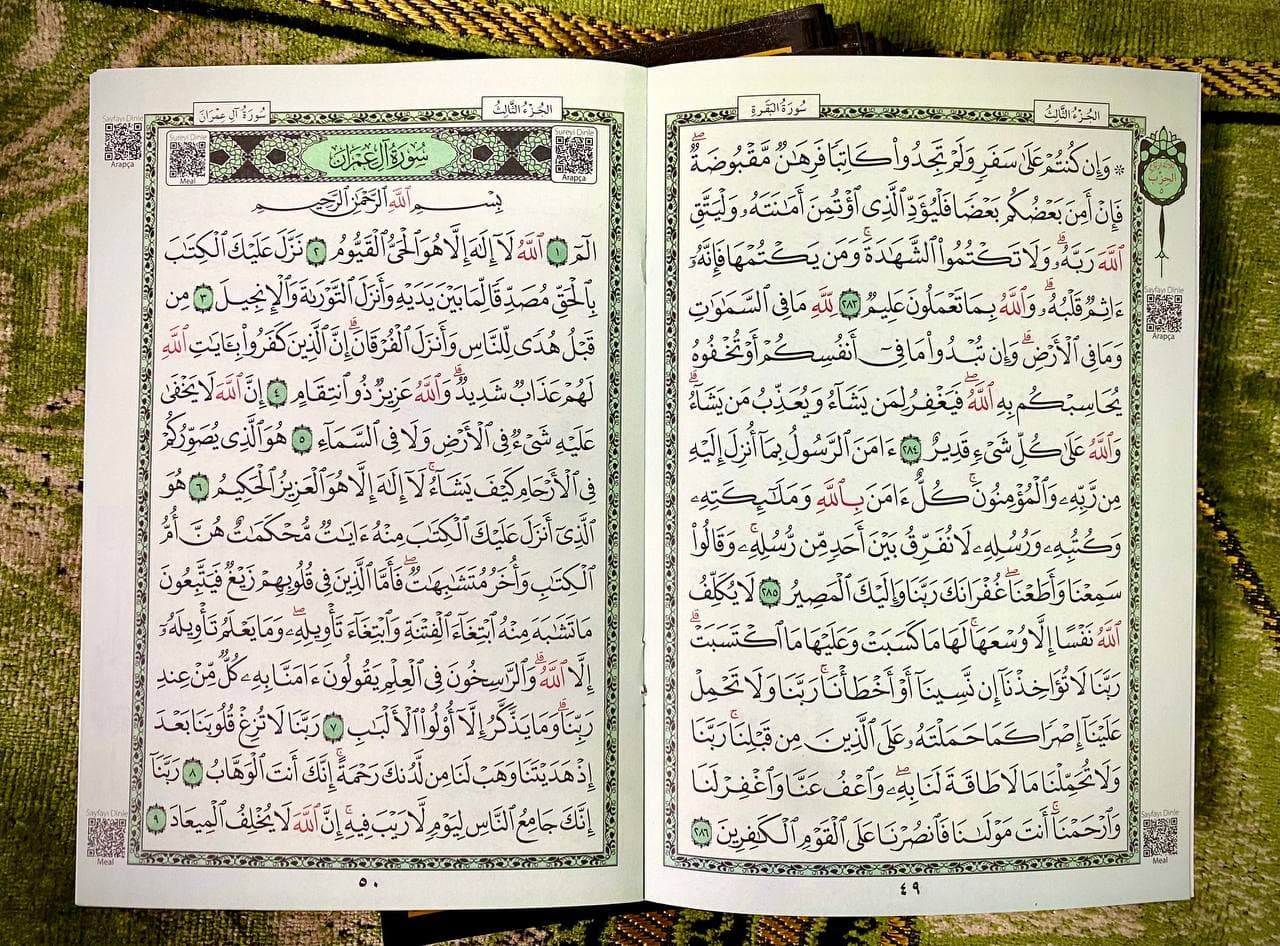 الجزء الثالث
سورة البقرة
الحزب
۞ وَإِن كُنتُمْ عَلَىٰ سَفَرٍ وَلَمْ تَجِدُوا۟ كَاتِبًا فَرِهَـٰنٌ مَّقْبُوضَةٌ ۖ
فَإِنْ أَمِنَ بَعْضُكُم بَعْضًا فَلْيُؤَدِّ ٱلَّذِى ٱؤْتُمِنَ أَمَـٰنَتَهُۥ وَلْيَتَّقِ
ٱللَّهَ رَبَّهُۥ ۗ وَلَا تَكْتُمُوا۟ ٱلشَّهَـٰدَةَ ۚ وَمَن يَكْتُمْهَا فَإِنَّهُۥٓ
ءَاثِمٌ قَلْبُهُۥ ۗ وَٱللَّهُ بِمَا تَعْمَلُونَ عَلِيمٌ ٢٨٣ لِّلَّهِ مَا فِى ٱلسَّمَـٰوَٰتِ
وَمَا فِى ٱلْأَرْضِ ۗ وَإِن تُبْدُوا۟ مَا فِىٓ أَنفُسِكُمْ أَوْ تُخْفُوهُ
يُحَاسِبْكُم بِهِ ٱللَّهُ ۖ فَيَغْفِرُ لِمَن يَشَآءُ وَيُعَذِّبُ مَن يَشَآءُ ۗ
وَٱللَّهُ عَلَىٰ كُلِّ شَىْءٍ قَدِيرٌ ٢٨٤ ءَامَنَ ٱلرَّسُولُ بِمَآ أُنزِلَ إِلَيْهِ
مِن رَّبِّهِۦ وَٱلْمُؤْمِنُونَ ۚ كُلٌّ ءَامَنَ بِٱللَّهِ وَمَلَـٰٓئِكَتِهِۦ
وَكُتُبِهِۦ وَرُسُلِهِۦ لَا نُفَرِّقُ بَيْنَ أَحَدٍ مِّن رُّسُلِهِۦ ۚ وَقَالُوا۟
سَمِعْنَا وَأَطَعْنَا ۖ غُفْرَانَكَ رَبَّنَا وَإِلَيْكَ ٱلْمَصِيرُ ٢٨٥ لَا يُكَلِّفُ
ٱللَّهُ نَفْسًا إِلَّا وُسْعَهَا ۚ لَهَا مَا كَسَبَتْ وَعَلَيْهَا مَا ٱكْتَسَبَتْ ۗ
رَبَّنَا لَا تُؤَاخِذْنَآ إِن نَّسِينَآ أَوْ أَخْطَأْنَا ۚ رَبَّنَا وَلَا تَحْمِلْ
عَلَيْنَآ إِصْرًا كَمَا حَمَلْتَهُۥ عَلَى ٱلَّذِينَ مِن قَبْلِنَا ۚ رَبَّنَا
وَلَا تُحَمِّلْنَا مَا لَا طَاقَةَ لَنَا بِهِۦ ۖ وَٱعْفُ عَنَّا وَٱغْفِرْ لَنَا
وَٱرْحَمْنَآ ۚ أَنتَ مَوْلَىٰنَا فَٱنصُرْنَا عَلَى ٱلْقَوْمِ ٱلْكَـٰفِرِينَ ٢٨٦
Sayfayı Dinle
Arapça
Sayfayı Dinle
Meal
٤٩
الجزء الثالث
سورة آل عمران
Sureyi Dinle
Arapça
سورة آل عمران
Sureyi Dinle
Meal
بِسْمِ ٱللَّهِ ٱلرَّحْمَـٰنِ ٱلرَّحِيمِ
الٓمٓ ١ ٱللَّهُ لَآ إِلَـٰهَ إِلَّا هُوَ ٱلْحَىُّ ٱلْقَيُّومُ ٢ نَزَّلَ عَلَيْكَ ٱلْكِتَـٰبَ
بِٱلْحَقِّ مُصَدِّقًا لِّمَا بَيْنَ يَدَيْهِ وَأَنزَلَ ٱلتَّوْرَىٰةَ وَٱلْإِنجِيلَ ٣ مِن
قَبْلُ هُدًى لِّلنَّاسِ وَأَنزَلَ ٱلْفُرْقَانَ ۗ إِنَّ ٱلَّذِينَ كَفَرُوا۟ بِـَٔايَـٰتِ ٱللَّهِ
لَهُمْ عَذَابٌ شَدِيدٌ ۗ وَٱللَّهُ عَزِيزٌ ذُو ٱنتِقَامٍ ٤ إِنَّ ٱللَّهَ لَا يَخْفَىٰ
عَلَيْهِ شَىْءٌ فِى ٱلْأَرْضِ وَلَا فِى ٱلسَّمَآءِ ٥ هُوَ ٱلَّذِى يُصَوِّرُكُمْ
فِى ٱلْأَرْحَامِ كَيْفَ يَشَآءُ ۚ لَآ إِلَـٰهَ إِلَّا هُوَ ٱلْعَزِيزُ ٱلْحَكِيمُ ٦ هُوَ
ٱلَّذِىٓ أَنزَلَ عَلَيْكَ ٱلْكِتَـٰبَ مِنْهُ ءَايَـٰتٌ مُّحْكَمَـٰتٌ هُنَّ أُمُّ
ٱلْكِتَـٰبِ وَأُخَرُ مُتَشَـٰبِهَـٰتٌ ۖ فَأَمَّا ٱلَّذِينَ فِى قُلُوبِهِمْ زَيْغٌ فَيَتَّبِعُونَ
مَا تَشَـٰبَهَ مِنْهُ ٱبْتِغَآءَ ٱلْفِتْنَةِ وَٱبْتِغَآءَ تَأْوِيلِهِۦ ۖ وَمَا يَعْلَمُ تَأْوِيلَهُۥٓ
إِلَّا ٱللَّهُ ۗ وَٱلرَّٰسِخُونَ فِى ٱلْعِلْمِ يَقُولُونَ ءَامَنَّا بِهِۦ كُلٌّ مِّنْ عِندِ
رَبِّنَا ۗ وَمَا يَذَّكَّرُ إِلَّآ أُو۟لُوا۟ ٱلْأَلْبَـٰبِ ٧ رَبَّنَا لَا تُزِغْ قُلُوبَنَا بَعْدَ
إِذْ هَدَيْتَنَا وَهَبْ لَنَا مِن لَّدُنكَ رَحْمَةً ۚ إِنَّكَ أَنتَ ٱلْوَهَّابُ ٨ رَبَّنَآ
إِنَّكَ جَامِعُ ٱلنَّاسِ لِيَوْمٍ لَّا رَيْبَ فِيهِ ۚ إِنَّ ٱللَّهَ لَا يُخْلِفُ ٱلْمِيعَادَ ٩
Sayfayı Dinle
Arapça
Sayfayı Dinle
Meal
٥٠